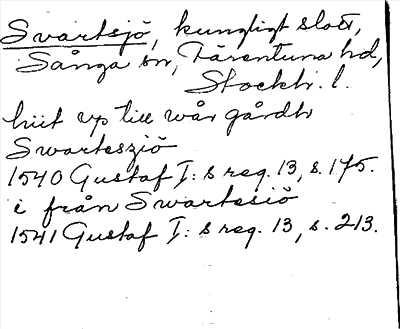 Svartsjö, kungligt slott,
Sånga sn, Färentuna hd,
Stockh. l.
hiit vp till wår gårdh
Swartesziö
1540 Gustaf I:s reg. 13, s. 175.
i från Swartesiö
1541 Gustaf I:s reg. 13, s. 213.